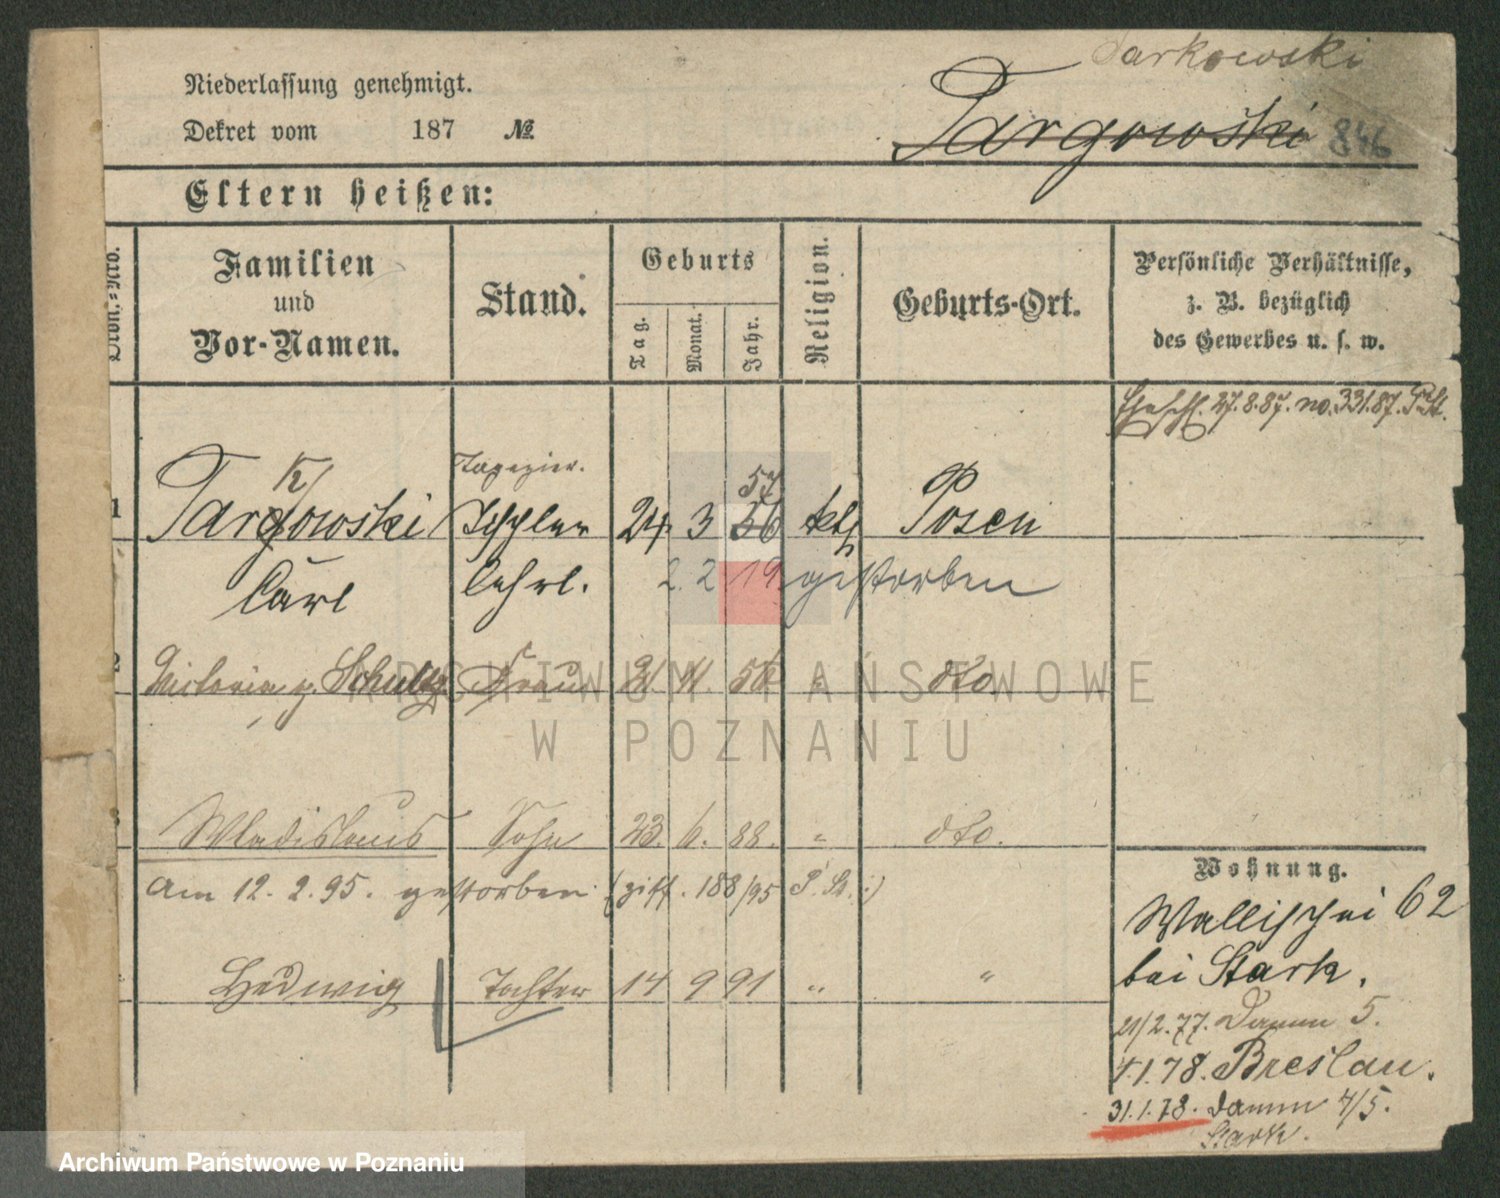 Tarkowski
Niederlassung genehmigt.
Dekret vom 187 №
Targowski 846
Eltern heißen:
Familien und Vor-Namen.
Stand.
Geburts
Tag. Monat. Jahr.
Religion.
Geburts-Ort.
Persönliche Verhältnisse,
z. B. bezüglich
des Gewerbes u. s. w.
27.8.87. no. 331.87.
K Tapezier. 57
1 Targowski Tischler 24. 3 56 kth Posen
Carl Lehrl. 2. 2. 19. gestorben
2 Victoria g. Schultz Frau 21. 11. dto
Wladislaus Sohn 23. 6. 88. " dto.
am 12. 2. 95. gestorben. 188/95
Hedwig Tochter 14 9 91 " "
Wohnung.
Wallischei 62
bei Stark.
21/2.77. Damm 5.
1.78. Breslau.
31.1.78. Damm 4/5.
Stark.
ARCHIWUM PAŃSTWOWE
W POZNANIU
Archiwum Państwowe w Poznaniu